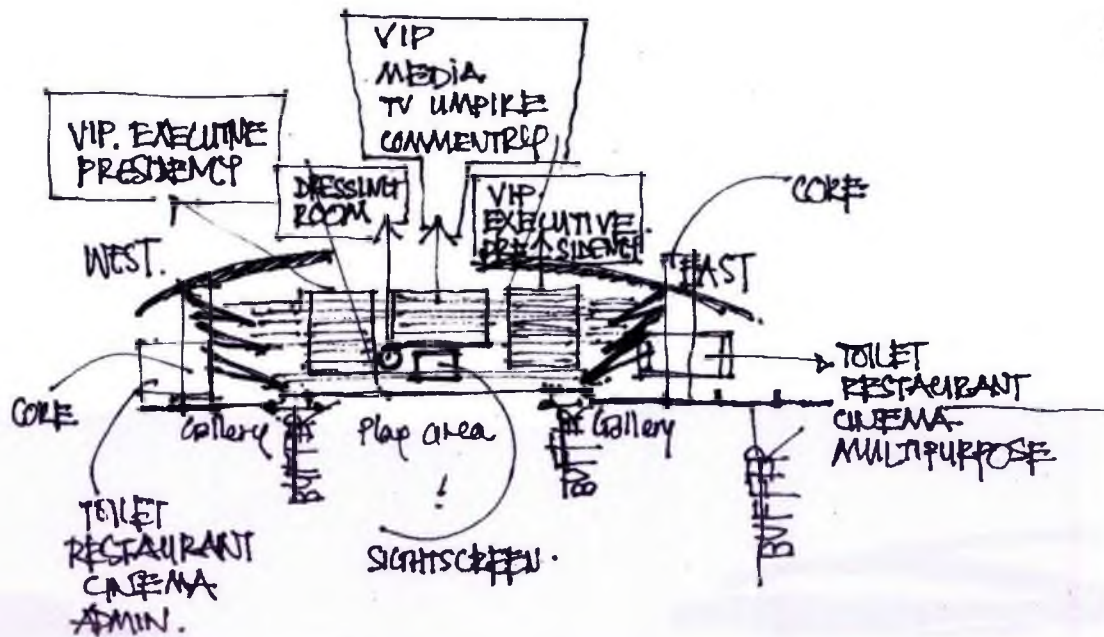 VIP
MEDIA
TV UMPIRE
COMMENTRY
VIP. EXECUTIVE
PRESIDENCY
DRESSING
ROOM
VIP.
EXECUTIVE.
PRESIDENCY
CORE
WEST.
EAST
TOILET
RESTAURANT
CINEMA
MULTIPURPOSE
CORE
Gallery
BUFFER
Play area
BUFFER
Gallery
BUFFER
TOILET
RESTAURANT
CINEMA
ADMIN.
!
SIGHTSCREEN.